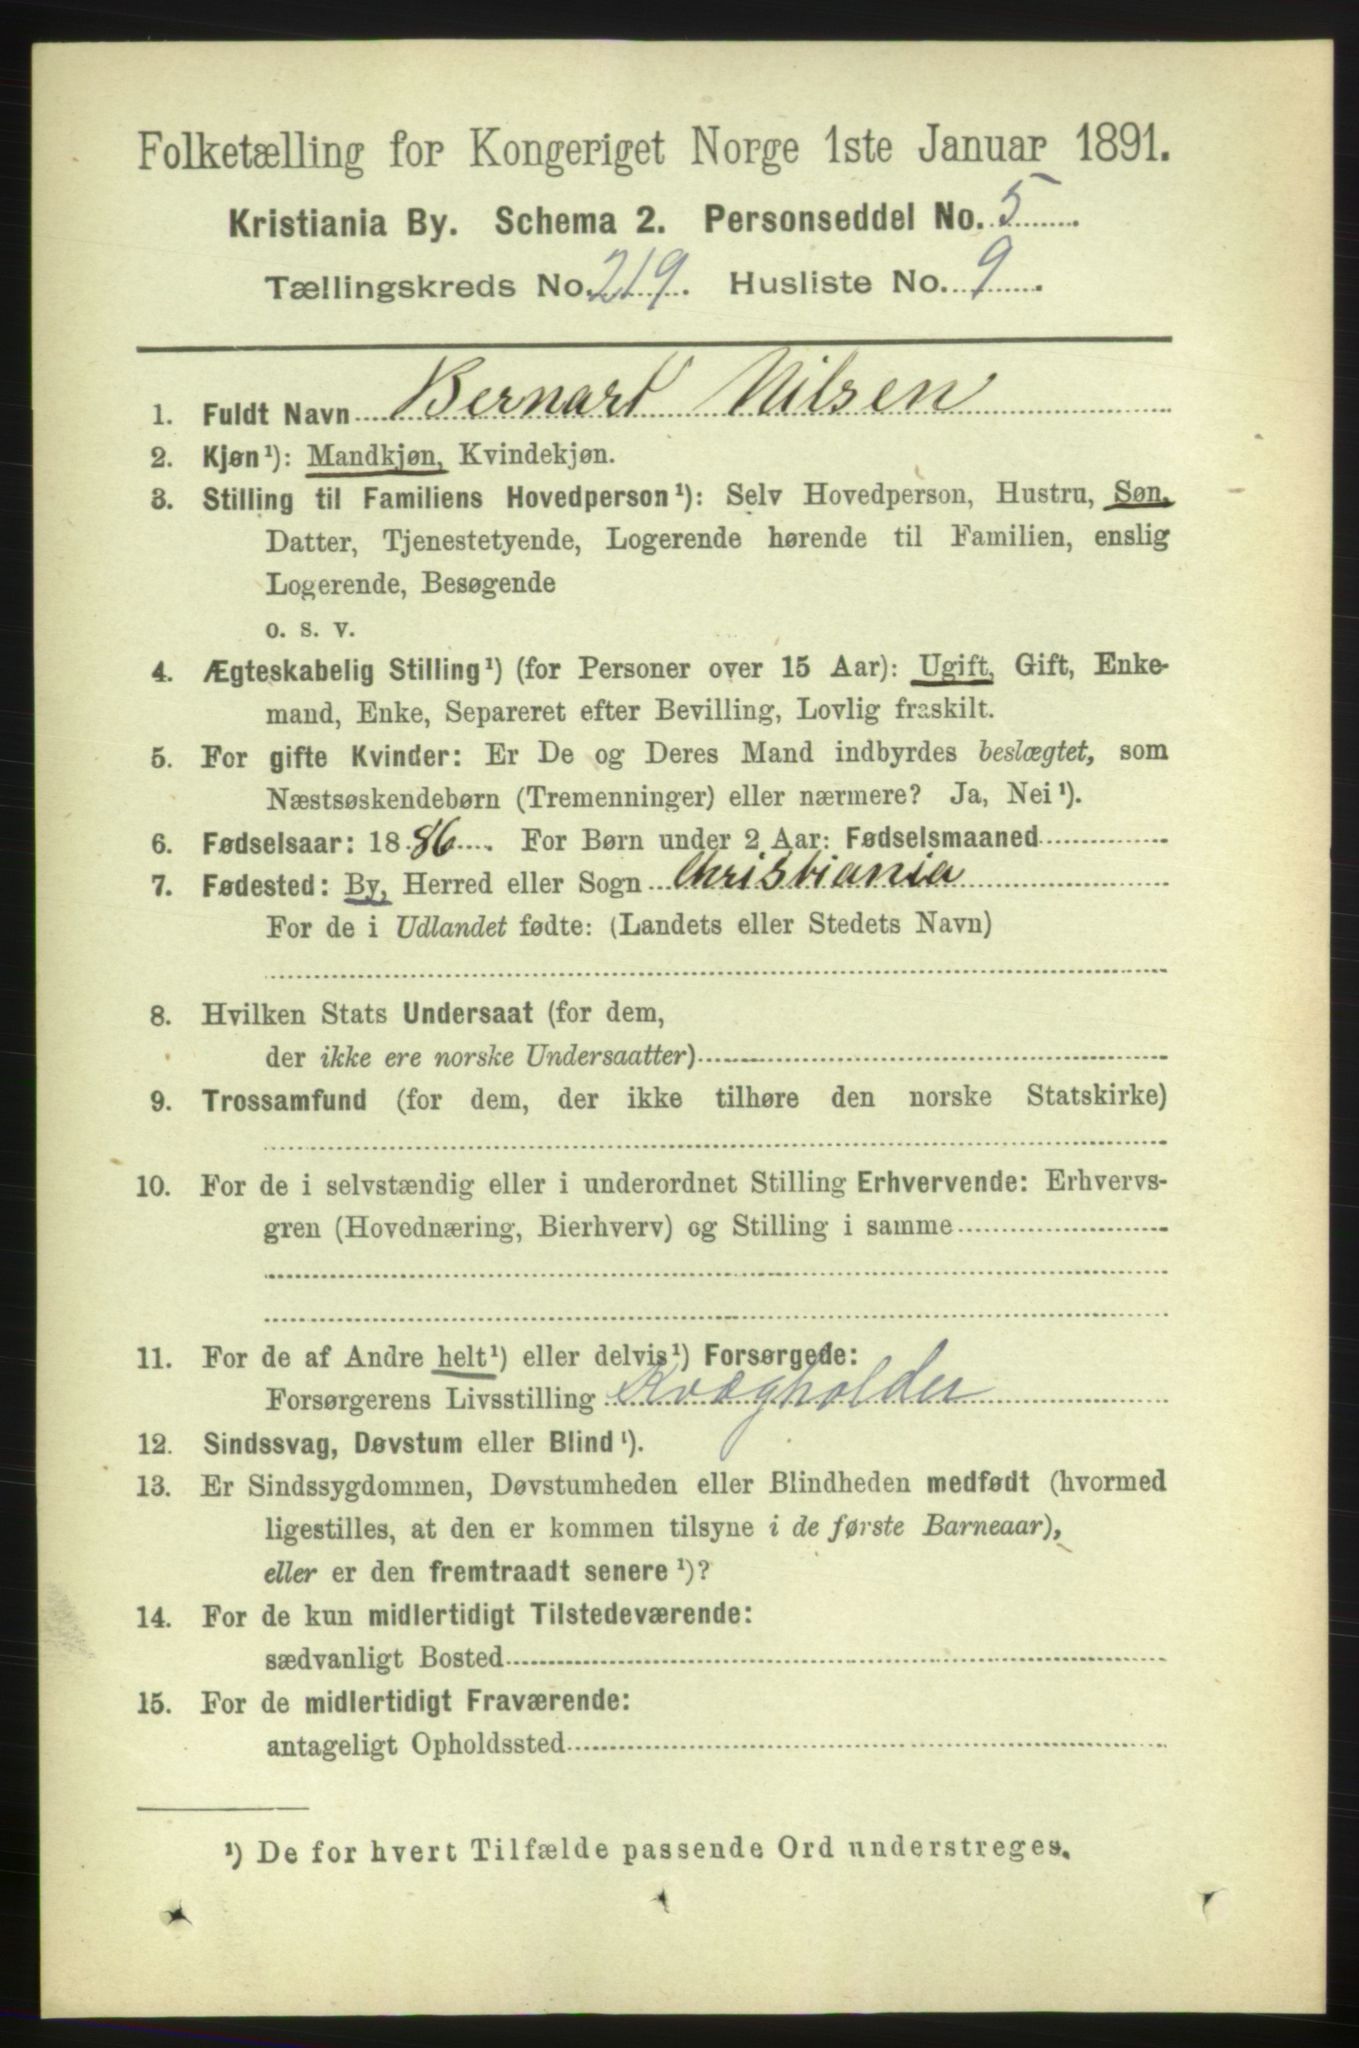 Folketælling for Kongeriget Norge 1ste Januar 1891.
Kristiania By. Schema 2. Personseddel No. 5
Tællingskreds No. 219. Husliste No. 9.
1. Fuldt Navn Bernart Nilsen
2. Kjøn¹): Mandkjøn, Kvindekjøn.
3. Stilling til Familiens Hovedperson¹): Selv Hovedperson, Hustru, Søn,
Datter, Tjenestetyende, Logerende hørende til Familien, enslig
Logerende, Besøgende
o. s. v.
4. Ægteskabelig Stilling¹) (for Personer over 15 Aar): Ugift, Gift, Enke-
mand, Enke, Separeret efter Bevilling, Lovlig fraskilt.
5. For gifte Kvinder: Er De og Deres Mand indbyrdes beslægtet, som
Næstsøskendebørn (Tremenninger) eller nærmere? Ja, Nei¹).
6. Fødselsaar: 1886. For Børn under 2 Aar: Fødselsmaaned
7. Fødested: By, Herred eller Sogn Christiania
For de i Udlandet fødte: (Landets eller Stedets Navn)
8. Hvilken Stats Undersaat (for dem,
der ikke ere norske Undersaatter)
9. Trossamfund (for dem, der ikke tilhøre den norske Statskirke)
10. For de i selvstændig eller i underordnet Stilling Erhvervende: Erhvervs-
gren (Hovednæring, Bierhverv) og Stilling i samme
11. For de af Andre helt¹) eller delvis¹) Forsørgede:
Forsørgerens Livsstilling Kvægholder
12. Sindssvag, Døvstum eller Blind¹).
13. Er Sindssygdommen, Døvstumheden eller Blindheden medfødt (hvormed
ligestilles, at den er kommen tilsyne i de første Barneaar),
eller er den fremtraadt senere¹)?
14. For de kun midlertidigt Tilstedeværende:
sædvanligt Bosted
15. For de midlertidigt Fraværende:
antageligt Opholdssted
¹) De for hvert Tilfælde passende Ord understreges.